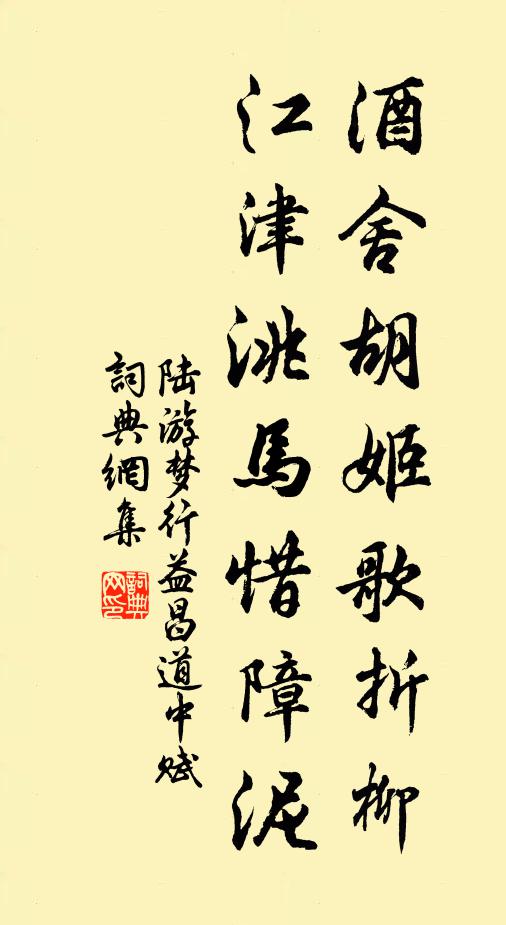 酒舍胡姬歌折柳
江津洮馬惜障泥
陆游梦行益昌道中赋
詞典網集
詞典網印